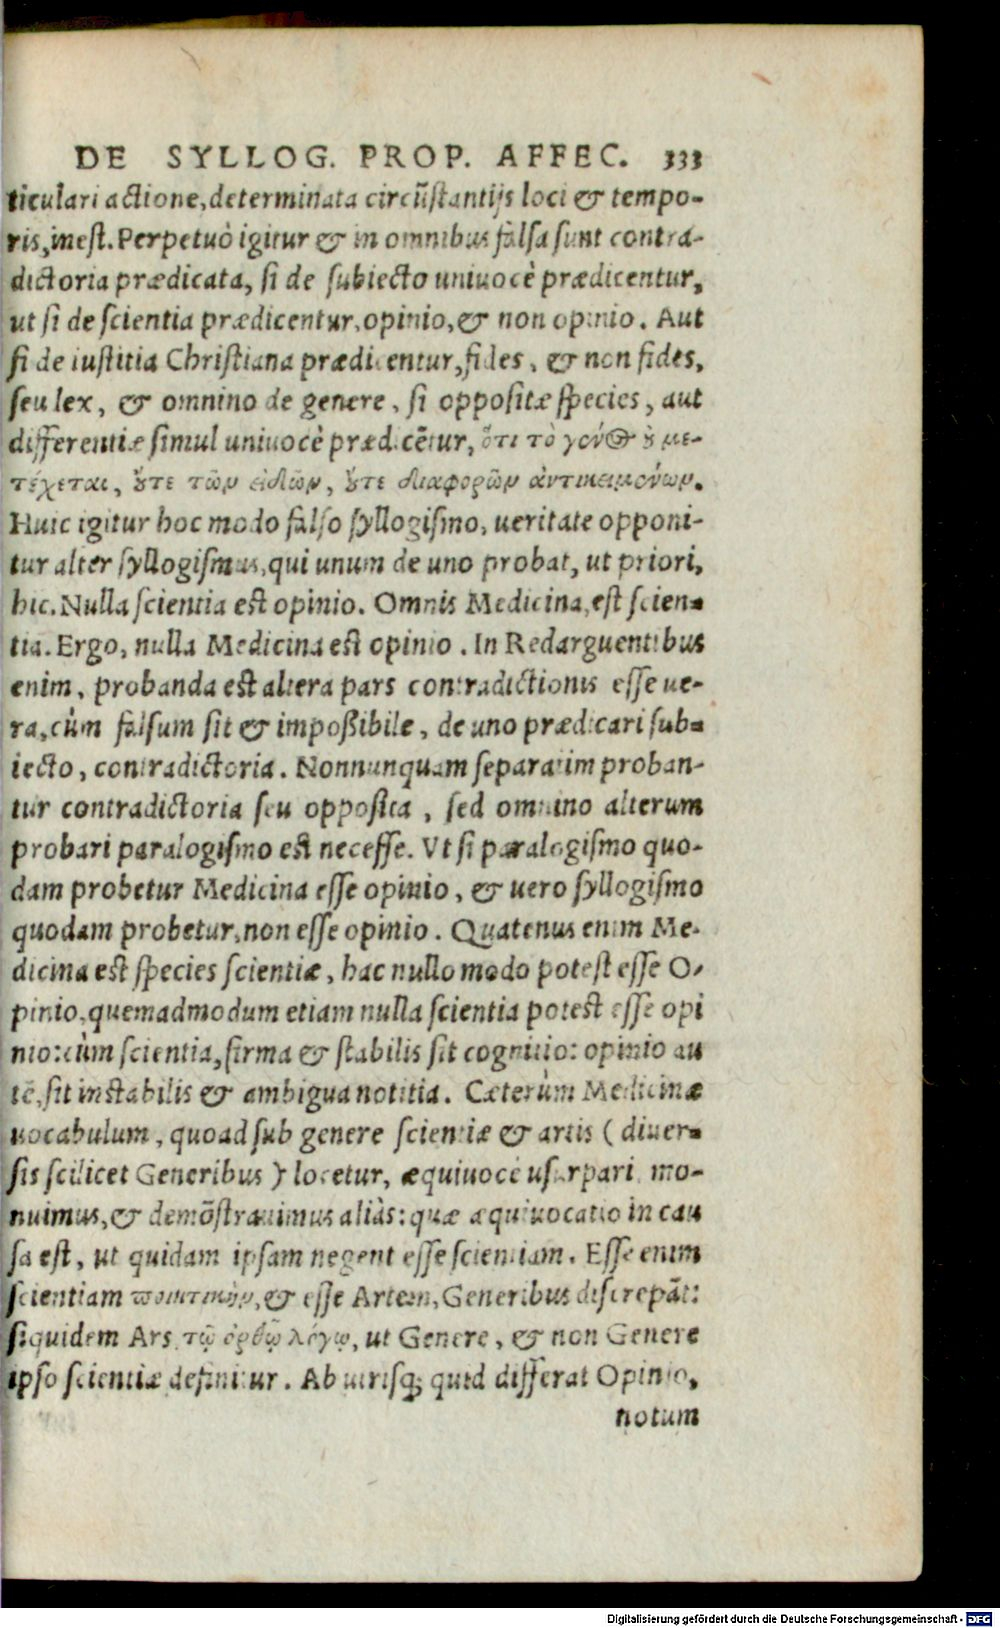 DE SYLLOG. PROP. AFFEC. 333
ticulari actione, determinata circũstantijs loci & tempo-
ris, inest. Perpetuò igitur & in omnibus falsa sunt contra-
dictoria prædicata, si de subiecto uniuocè prædicentur,
ut si de scientia prædicentur, opinio, & non opinio. Aut
si de iustitia Christiana prædicentur, fides, & non fides,
seu lex, & omnino de genere, si oppositæ species, aut
differentiæ simul uniuocè prædicẽtur, ὅτι τὸ γένος οὐ με-
τέχεται, οὔτε τῶν εἰδῶν, οὔτε διαφορῶν ἀντικειμένων.
Huic igitur hoc modo falso syllogismo, ueritate opponi-
tur alter syllogismus, qui unum de uno probat, ut priori,
hic. Nulla scientia est opinio. Omnis Medicina, est scien-
tia. Ergo, nulla Medicina est opinio. In Redarguentibus
enim, probanda est altera pars contradictionis esse ue-
ra, cùm falsum sit & impoßibile, de uno prædicari sub-
iecto, contradictoria. Nonnunquam separatim proban-
tur contradictoria seu opposita, sed omnino alterum
probari paralogismo est necesse. Vt si paralogismo quo-
dam probetur Medicina esse opinio, & uero syllogismo
quodam probetur, non esse opinio. Quatenus enim Me-
dicina est species scientiæ, hac nullo modo potest esse O-
pinio, quemadmodum etiam nulla scientia potest esse opi
nio: cùm scientia, firma & stabilis sit cognitio: opinio au
tẽ, sit instabilis & ambigua notitia. Cæterùm Medicinæ
uocabulum, quoad sub genere scientiæ & artis (diuer-
sis scilicet Generibus) locetur, æquiuocè usurpari, mo-
nuimus, & demõstrauimus aliàs: quæ æquiuocatio in cau
sa est, ut quidam ipsam negent esse scientiam. Esse enim
scientiam ποιητικὴν, & esse Artem, Generibus discrepãt:
siquidem Ars τῷ ὀρθῷ λόγῳ, ut Genere, & non Genere
ipso scientiæ definitur. Ab utrisq; quid differat Opinio,
notum
Digitalisierung gefördert durch die Deutsche Forschungsgemeinschaft - DFG